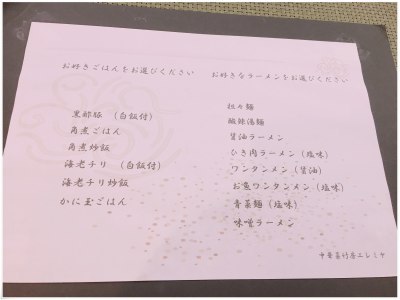 お好きごはんをお選びください
黒酢豚 (白飯付)
角煮ごはん
角煮炒飯
海老チリ (白飯付)
海老チリ炒飯
かに玉ごはん
お好きなラーメンをお選びください
担々麺
酸辣湯麺
醤油ラーメン
ひき肉ラーメン (塩味)
ワンタンメン (醤油)
お魚ワンタンメン (塩味)
青菜麺 (塩味)
味噌ラーメン
中華菜竹荅エレミヤ